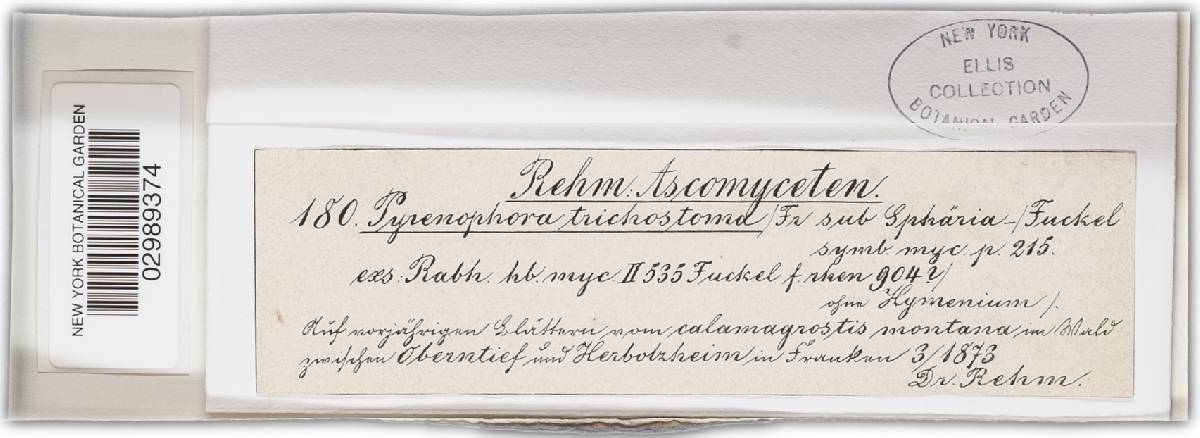 NEW YORK
ELLIS
COLLECTION
BOTANICAL GARDEN
NEW YORK BOTANICAL GARDEN
02989374
Rehm: Ascomyceten.
180. Pyrenophora trichostoma /Fr sub Sphäria-/Fuckel
symb. myc. p. 215.
exs: Rabh. hb. myc. II 535 Fuckel f. rhen 904 ?/
ohne Hymenium /.
Auf vorjährigen Blättern vom calamagrostis montana im Wald
zwischen Oberntief und Herbolzheim in Franken 3/1873
Dr. Rehm.